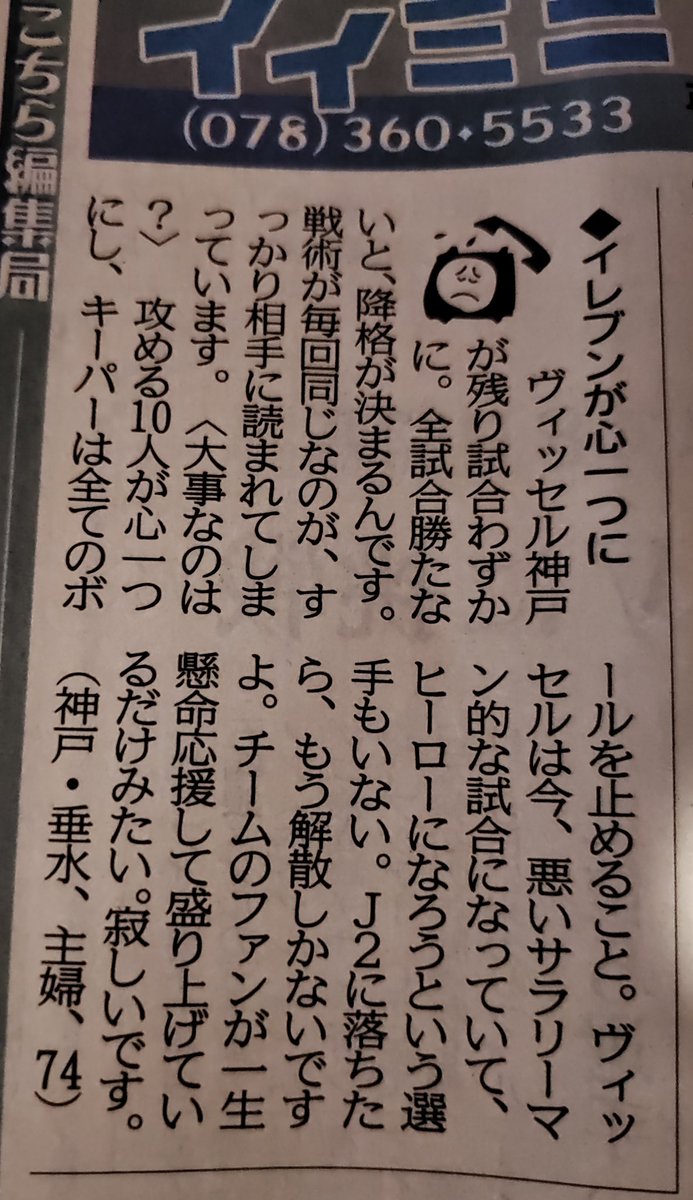 こちら編集局
イイミミ
(078)360・5533
◆イレブンが心一つに
ヴィッセル神戸
が残り試合わずか
に。全試合勝たな
いと、降格が決まるんです。
戦術が毎回同じなのが、す
っかり相手に読まれてしま
っています。〈大事なのは
？〉 攻める10人が心一つ
にし、キーパーは全てのボ
ールを止めること。ヴィッ
セルは今、悪いサラリーマ
ン的な試合になっていて、
ヒーローになろうという選
手もいない。J2に落ちた
ら、もう解散しかないです
よ。チームのファンが一生
懸命応援して盛り上げてい
るだけみたい。寂しいです。
（神戸・垂水、主婦、74）